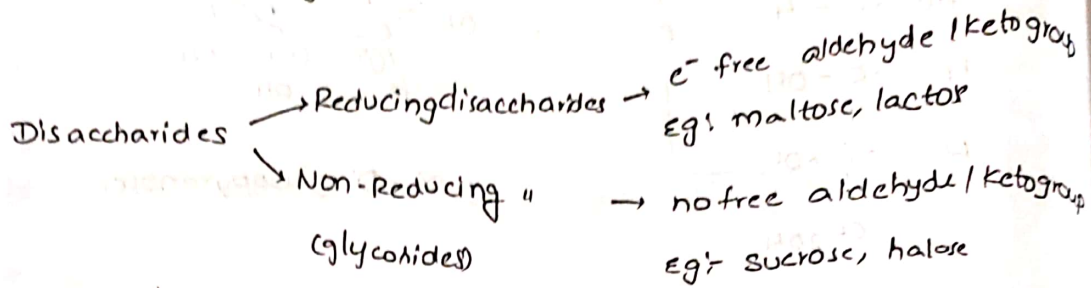 Disaccharides
→ Reducing disaccharides → c̄ free aldehyde / keto group
Eg: maltose, lactose
→ Non-Reducing " → no free aldehyde / keto group
(glycosides)
Eg:- sucrose, halose